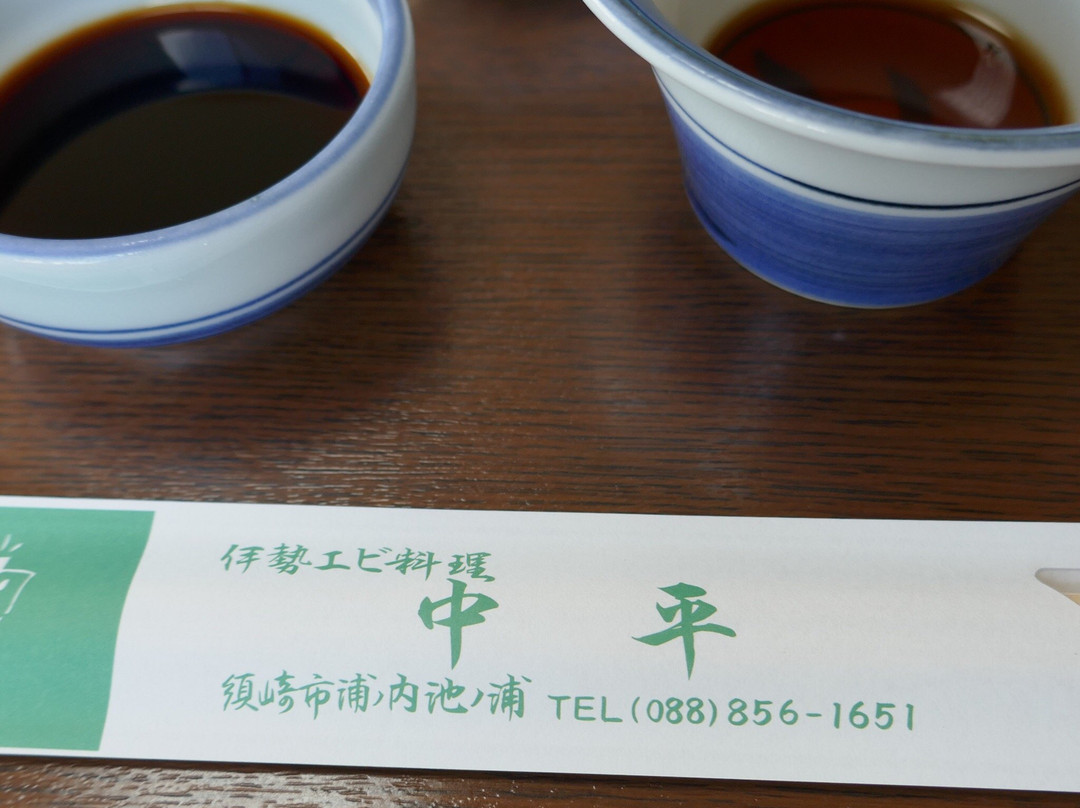 伊勢エビ料理
中 平
須崎市浦ノ内池ノ浦 TEL(088)856-1651